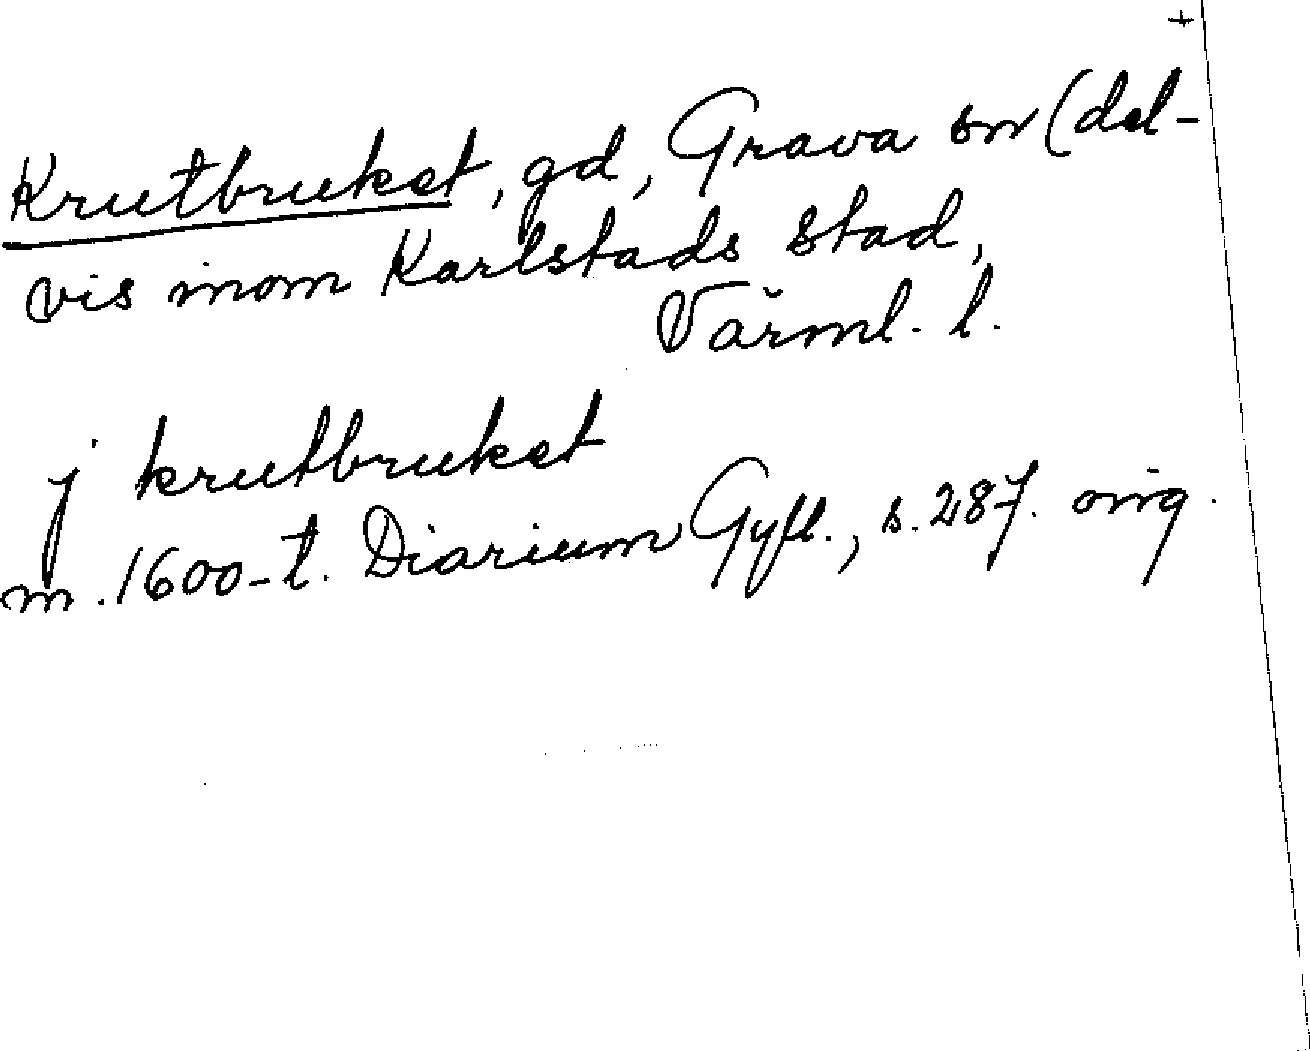 +
Krutbruket, gd, Grava sn (del-
vis inom Karlstads stad,
Värml. l.
j krutbruket
m. 1600-t. Diarium Gyll., s. 287. orig.